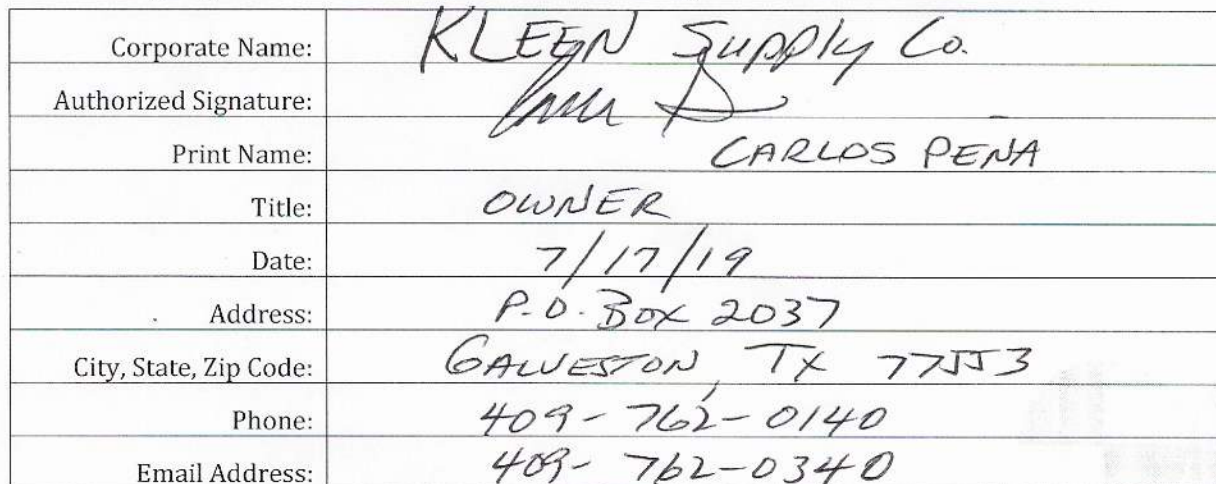 Corporate Name: KLEEN Supply Co.
Authorized Signature:
Print Name: CARLOS PEÑA
Title: OWNER
Date: 7/17/19
Address: P.O. BOX 2037
City, State, Zip Code: GALVESTON, TX 77553
Phone: 409-762-0140
Email Address: 409-762-0340